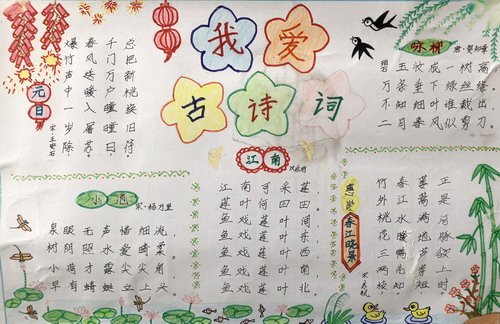 我爱
古诗词
元日
宋·王安石
爆竹声中一岁除
春风送暖入屠苏。
千门万户曈曈日
总把新桃换旧符。
咏柳
唐·贺知章
碧玉妆成一树高
万条垂下绿丝绦。
不知细叶谁裁出
二月春风似剪刀。
小池
宋·杨万里
泉眼无声惜细流
树阴照水爱晴柔。
小荷才露尖尖角
早有蜻蜓立上头。
江南
汉乐府
江南可采莲
莲叶何田田
鱼戏莲叶间
鱼戏莲叶东
鱼戏莲叶西
鱼戏莲叶南
鱼戏莲叶北。
惠崇春江晓景
竹外桃花三两枝
春江水暖鸭先知
蒌蒿满地芦芽短
正是河豚欲上时。